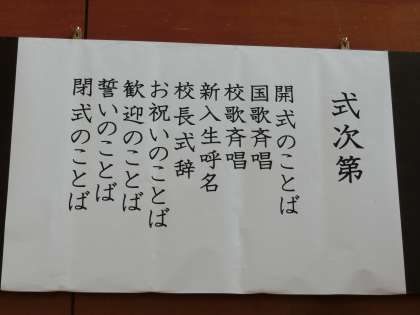 式次第
開式のことば
国歌斉唱
校歌斉唱
新入生呼名
校長式辞
お祝いのことば
歓迎のことば
誓いのことば
閉式のことば